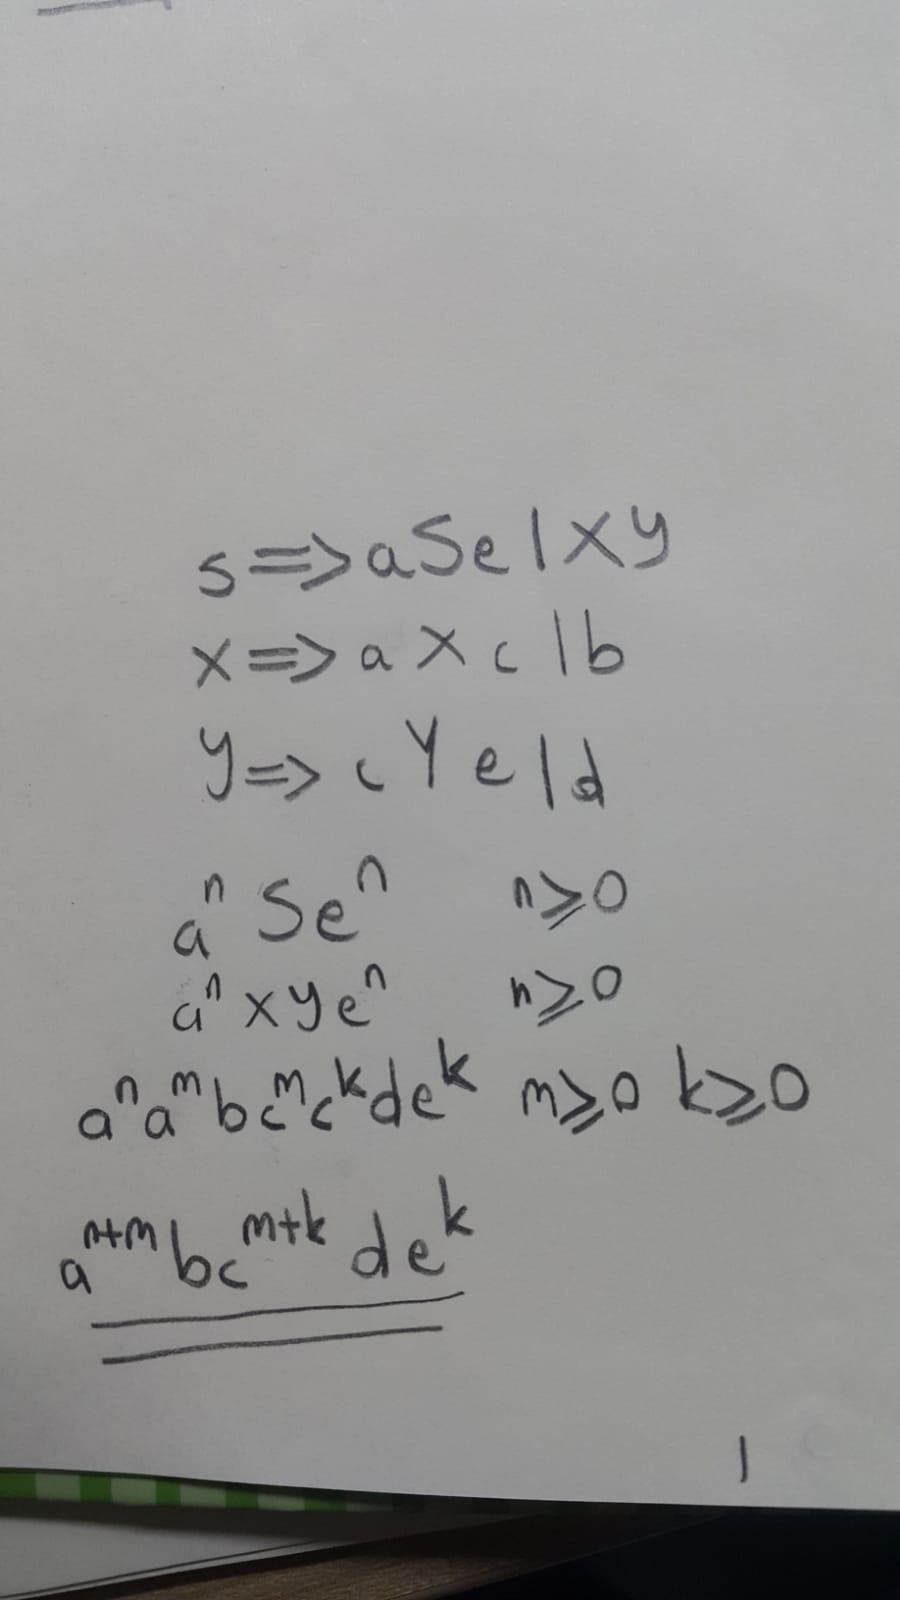 s=>aSe|xy
x=>aXc|b
y=>cYe|d
aⁿSeⁿ n≥0
aⁿxyeⁿ n≥0
aⁿaᵐbcᵐcᵏdeᵏ m≥0 k≥0
aⁿ⁺ᵐbcᵐ⁺ᵏdeᵏ
1